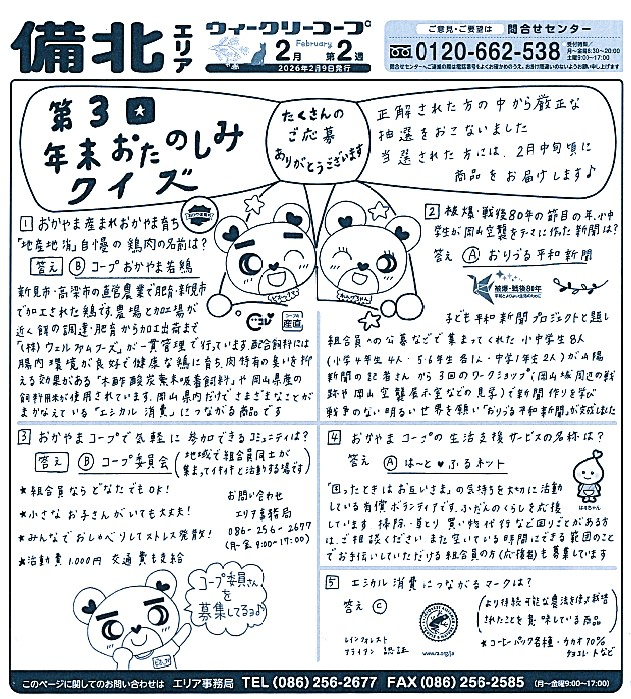 備北エリア
ウィークリーコープ
February
2月 第2週
2026年2月9日発行
ご意見・ご要望は 問合せセンター
0120-662-538
受付時間／
月～金曜8:30～20:00
土曜9:00～17:00
第3回
年末おたのしみ
クイズ
たくさんの
ご応募
ありがとうございます
正解された方の中から厳正な
抽選をおこないました
当選された方には、2月中旬頃に
商品をお届けします♪
1 おかやま産まれおかやま育ち
"地産地消"自慢の鶏肉の名前は?
答え Ⓑ コープおかやま若鶏
新見市・高梁市の直営農業で肥育・新見市
で加工された鶏です。農場と加工場が
近く餌の調達・肥育から加工出荷まで
「(株)ウェルファムフーズ」が一貫管理で行っています。配合飼料には
腸内環境が良好で健康な鶏に育ち、肉特有の臭いを抑
える効果がある"木酢酸炭素末吸着飼料"や岡山県産の
飼料用米が使用されています。岡山県内だけでさまざまなことが
まかなえている"エシカル消費"につながる商品です
コープ
産直
2 被爆・戦後80年の節目の年、小中
学生が岡山空襲をテーマに作った新聞は?
答え Ⓐ おりづる平和新聞
被爆・戦後80年
子ども平和新聞プロジェクトと題し
組合員への公募などで集まってくれた小中学生8人
(小学4年生4人・5・6年生各1人・中学1年生2人)が山陽
新聞の記者さんから3回のワークショップ(岡山城周辺の戦
跡や岡山空襲展示室などの見学)で新聞作りを学び
戦争のない明るい世界を願い「おりづる平和新聞」が完成しました
3 おかやまコープで気軽に参加できるコミュニティは?
答え Ⓑ コープ委員会 (地域で組合員同士が
集まってイキイキと活動する場です)
★組合員ならどなたでもOK!
★小さなお子さんがいても大丈夫!
★みんなでおしゃべりしてストレス発散!
★活動費1,000円 交通費も支給
お問い合わせ
エリア事務局
086-256-2677
(月-金9:00~17:00)
コープ委員さん!
を
募集してるョ♪
4 おかやまコープの生活支援サービスの名称は?
答え Ⓐ は〜と♥ふるネット
「困ったときはお互いさま」の気持ちを大切に活動
している有償ボランティアです。ふだんのくらしを応援
しています 掃除・草とり 買い物代行など困りごとがある方
は、ご相談ください また空いている時間にできる範囲のこと
でお手伝いしていただける組合員の方(応援者)も募集しています
はるちゃん
5 エシカル消費につながるマークは?
答え Ⓒ
レインフォレスト
アライアンス 認証
www.ra.org/ja
(より持続可能な農法を使って栽培
されたことを意味している商品)
★コーヒーバッグ各種・カカオ70%
チョコレートなど
このページに関してのお問い合わせは エリア事務局 TEL (086) 256-2677 FAX (086) 256-2585 (月～金曜9:00～17:00)